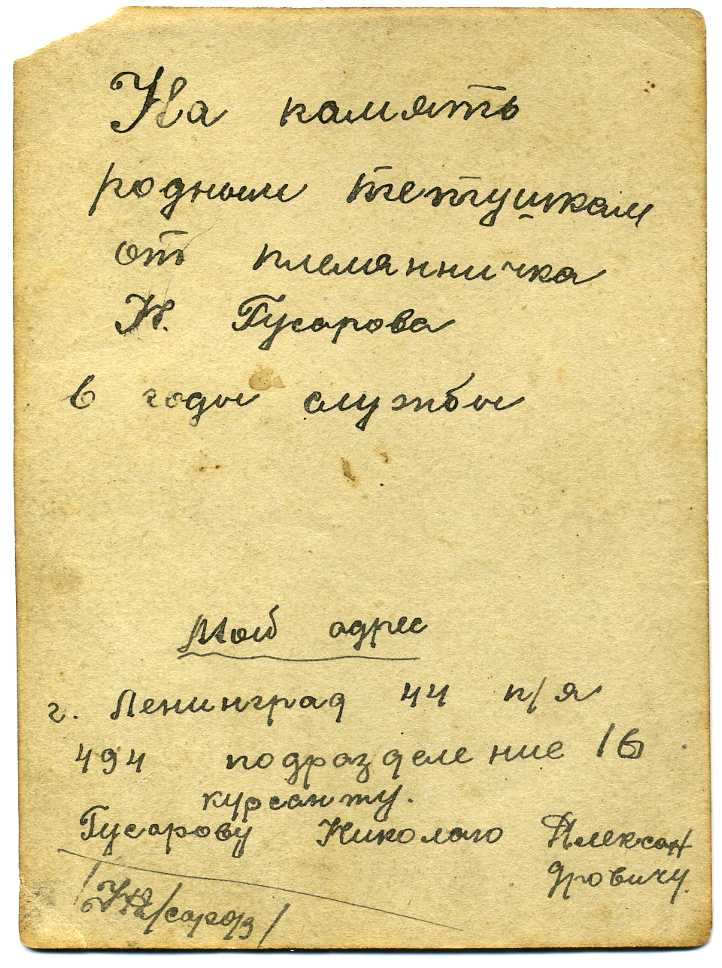 На память
родным тетушкам
от племянничка
Н. Гусарова
в годы службы
Мой адрес
г. Ленинград 44 п/я
494 подразделение 16
курсанту.
Гусарову Николаю Алексан
дровичу.